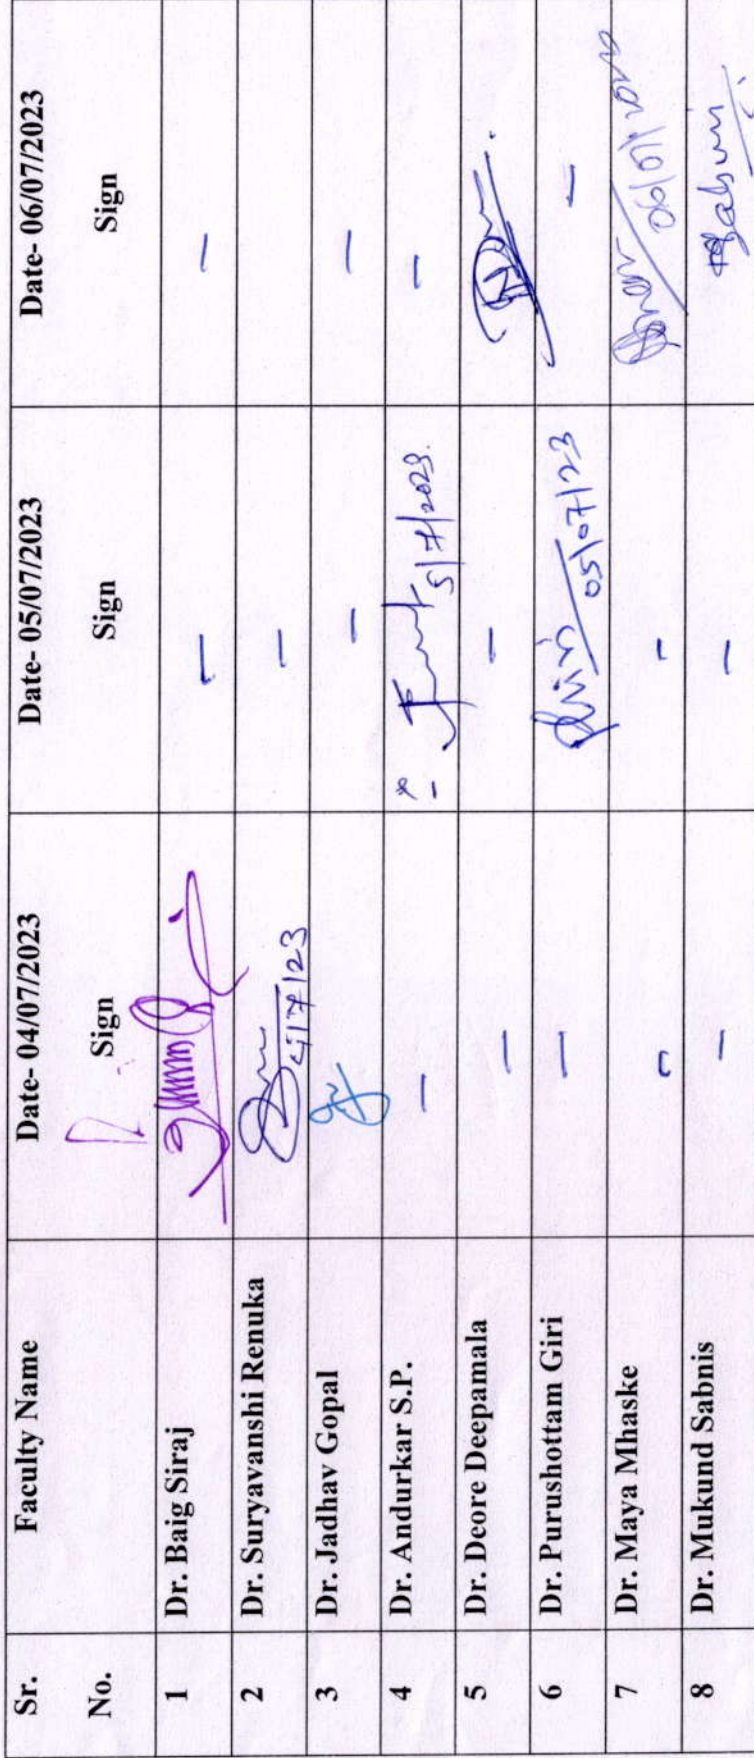 Sr. No. Faculty Name Date- 04/07/2023 Sign Date- 05/07/2023 Sign Date- 06/07/2023 Sign
1 Dr. Baig Siraj — —
2 Dr. Suryavanshi Renuka 4/7/23 —
3 Dr. Jadhav Gopal — —
4 Dr. Andurkar S.P. — 5/7/2023. —
5 Dr. Deore Deepamala — —
6 Dr. Purushottam Giri — 05/07/23 —
7 Dr. Maya Mhaske — —
8 Dr. Mukund Sabnis — —